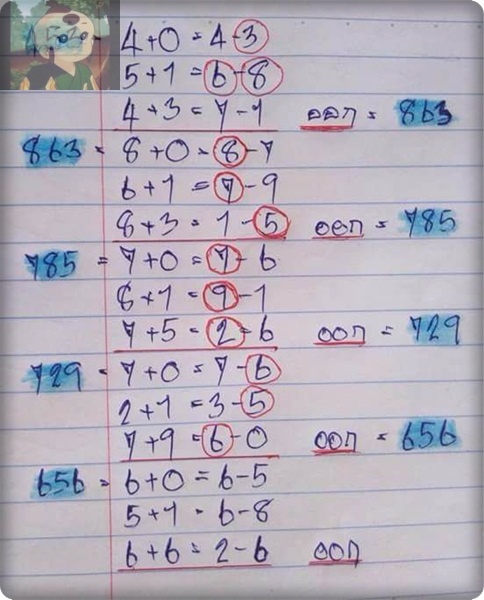 4+0=4-3
5+1=6-8
4+3=7-1 ออก = 863
863 = 8+0=8-7
6+1=7-9
8+3=1-5 ออก = 785
785 = 7+0=7-6
8+1=9-1
7+5=2-6 ออก = 729
729 = 7+0=7-6
2+1=3-5
7+9=6-0 ออก = 656
656 = 6+0=6-5
5+1=6-8
6+6=2-6 ออก